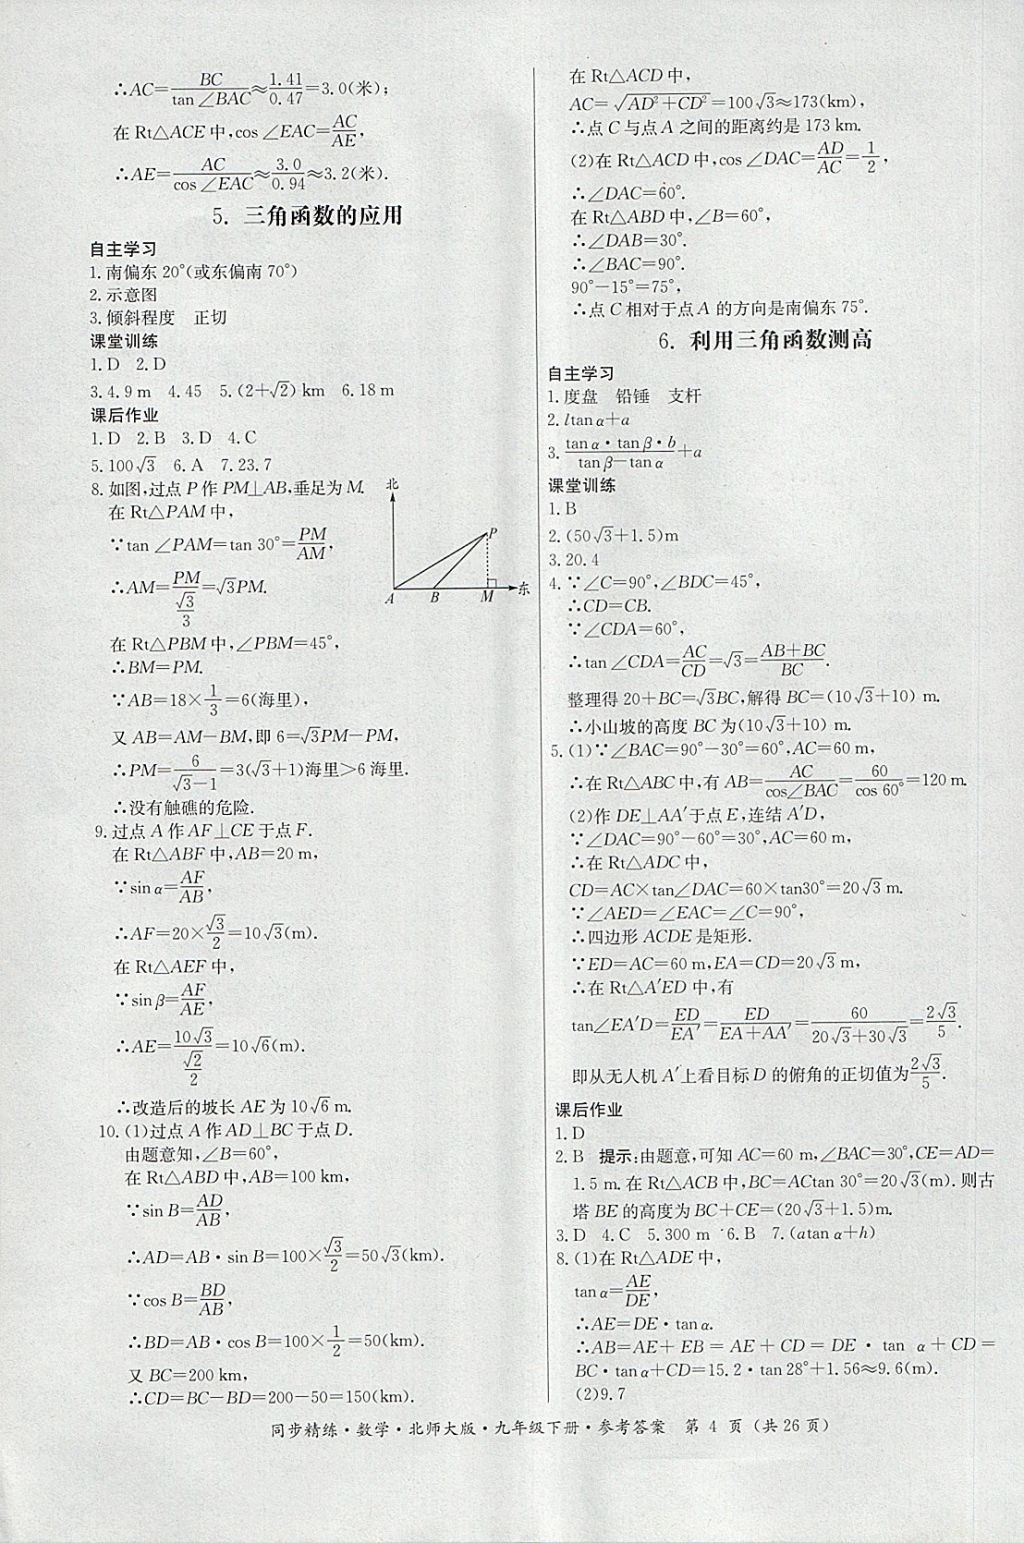 ∴AC=BC/tan∠BAC≈1.41/0.47=3.0(米);
在 Rt△ACE 中,cos∠EAC=AC/AE,
∴AE=AC/cos∠EAC≈3.0/0.94≈3.2(米).
5. 三角函数的应用
自主学习
1.南偏东 20°(或东偏南 70°)
2.示意图
3.倾斜程度 正切
课堂训练
1.D 2.D
3.4.9 m 4.45 5.(2+√2) km 6.18 m
课后作业
1.D 2.B 3.D 4.C
5.100√3 6.A 7.23.7
8.如图,过点 P 作 PM⊥AB,垂足为 M.
在 Rt△PAM 中,
∵tan∠PAM=tan 30°=PM/AM,
∴AM=PM/(√3/3)=√3PM.
在 Rt△PBM 中,∠PBM=45°,
∴BM=PM.
∵AB=18×1/3=6(海里),
又 AB=AM-BM,即 6=√3PM-PM,
∴PM=6/(√3-1)=3(√3+1)海里>6 海里.
∴没有触礁的危险.
北
P
A B M 东
9.过点 A 作 AF⊥CE 于点 F.
在 Rt△ABF 中,AB=20 m,
∵sin α=AF/AB,
∴AF=20×√3/2=10√3(m).
在 Rt△AEF 中,
∵sin β=AF/AE,
∴AE=10√3/(√2/2)=10√6(m).
∴改造后的坡长 AE 为 10√6 m.
10.(1)过点 A 作 AD⊥BC 于点 D.
由题意知,∠B=60°,
在 Rt△ABD 中,AB=100 km,
∵sin B=AD/AB,
∴AD=AB·sin B=100×√3/2=50√3(km).
∵cos B=BD/AB,
∴BD=AB·cos B=100×1/2=50(km).
又 BC=200 km,
∴CD=BC-BD=200-50=150(km).
在 Rt△ACD 中,
AC=√(AD²+CD²)=100√3≈173(km),
∴点 C 与点 A 之间的距离约是 173 km.
(2)在 Rt△ACD 中,cos∠DAC=AD/AC=1/2,
∴∠DAC=60°.
在 Rt△ABD 中,∠B=60°,
∴∠DAB=30°.
∴∠BAC=90°.
90°-15°=75°,
∴点 C 相对于点 A 的方向是南偏东 75°.
6. 利用三角函数测高
自主学习
1.度盘 铅锤 支杆
2.ltan α+a
3.(tan α·tan β·b)/(tan β-tan α)+a
课堂训练
1.B
2.(50√3+1.5)m
3.20.4
4.∵∠C=90°,∠BDC=45°,
∴CD=CB.
∵∠CDA=60°,
∴tan∠CDA=AC/CD=√3=(AB+BC)/BC.
整理得 20+BC=√3BC,解得 BC=(10√3+10) m.
∴小山坡的高度 BC 为(10√3+10) m.
5.(1)∵∠BAC=90°-30°=60°,AC=60 m,
∴在 Rt△ABC 中,有 AB=AC/cos∠BAC=60/cos 60°=120 m.
(2)作 DE⊥AA′于点 E,连结 A′D,
∵∠DAC=90°-60°=30°,AC=60 m,
∴在 Rt△ADC 中,
CD=AC×tan∠DAC=60×tan30°=20√3 m.
∵∠AED=∠EAC=∠C=90°,
∴四边形 ACDE 是矩形.
∵ED=AC=60 m,EA=CD=20√3 m,
∴在 Rt△A′ED 中,有
tan∠EA′D=ED/EA′=ED/(EA+AA′)=60/(20√3+30√3)=2√3/5.
即从无人机 A′上看目标 D 的俯角的正切值为2√3/5.
课后作业
1.D
2.B 提示:由题意,可知 AC=60 m,∠BAC=30°,CE=AD=
1.5 m.在 Rt△ACB 中,BC=ACtan 30°=20√3(m).则古
塔 BE 的高度为 BC+CE=(20√3+1.5)m.
3.D 4.C 5.300 m 6.B 7.(atan α+h)
8.(1)在 Rt△ADE 中,
tan α=AE/DE,
∴AE=DE·tan α.
∴AB=AE+EB=AE+CD=DE·tan α+CD=
BC·tan α+CD=15.2·tan 28°+1.56≈9.6(m).
(2)9.7
同步精练·数学·北师大版·九年级下册·参考答案 第 4 页 (共 26 页)